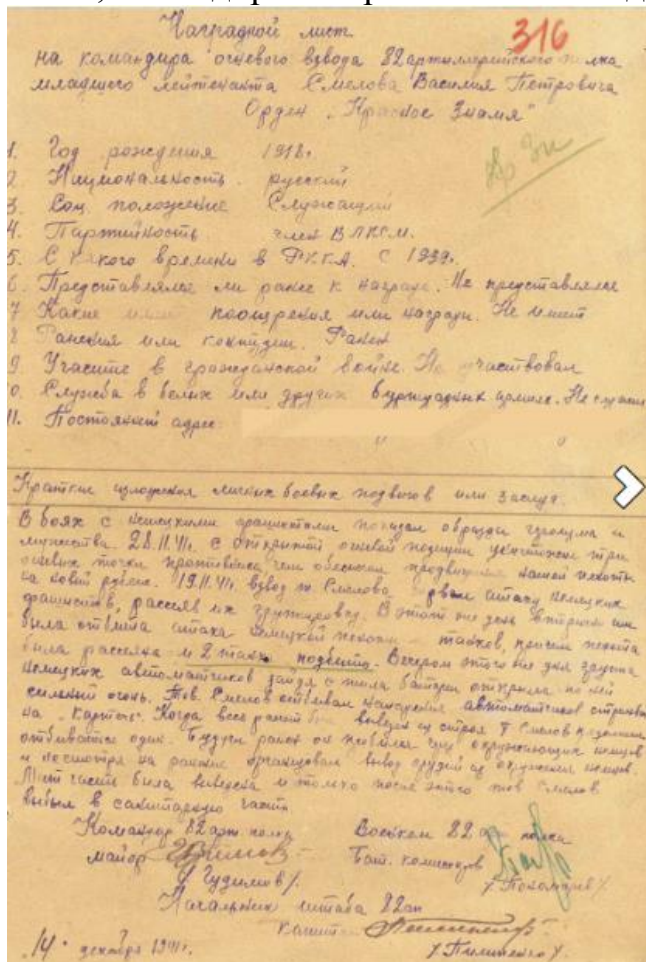 Наградной лист
316
на командира огневого взвода 82 артиллерийского полка
младшего лейтенанта Смелова Василия Петровича
Орден „Красное Знамя"
Кр Зн
1. Год рождения 1918г.
2. Национальность. русский
3. Соц. положение Служащий
4. Партийность. член ВЛКСМ.
5. С какого времени в РККА. С 1939г.
6. Представлялся ли ранее к награде. Не представлялся
7 Какие имеет поощрения или награды. Не имеет
8 Ранения или контузии. Ранен
9. Участие в гражданской войне. Не участвовал
10. Служба в белых или других буржуазных армиях. Не служил
11. Постоянный адрес:
Краткое изложение личных боевых подвигов или заслуг.
В боях с немецкими фашистами показал образцы героизма и
мужества. 28.11.41г. с открытой огневой позиции уничтожил три
огневых точки противника чем обеспечил продвижение нашей пехоты
на новый рубеж. 19.11.41г. взвод т. Смелова атаку немецких
фашистов, рассеяв их группировку. В этот же день вторично им
была отбита атака немецкой пехоты танков, причем пехота
была рассеяна и 2 танка подбито. Вечером этого же дня группа
немецких автоматчиков зайдя с тыла батареи открыла по ней
сильный огонь. Тов. Смелов отбивал нападение автоматчиков стреляя
на „Картечь". Когда весь расчет был выведен из строя т Смелов продолжал
отбиваться один. Будучи ранен он пробился окружающих немцев
и несмотря на ранение организовал вывод орудий из окружения немцев.
Мат часть была вывезена и только после этого тов Смелов
выбыл в санитарную часть.
Командир 82 арт. полка Военком 82 ап полка
майор Бат. комиссар
/Гудимов/. /Пономарев/
Начальник штаба 82ап
капитан
„14" декабря 1941г. /Пилипенко/.